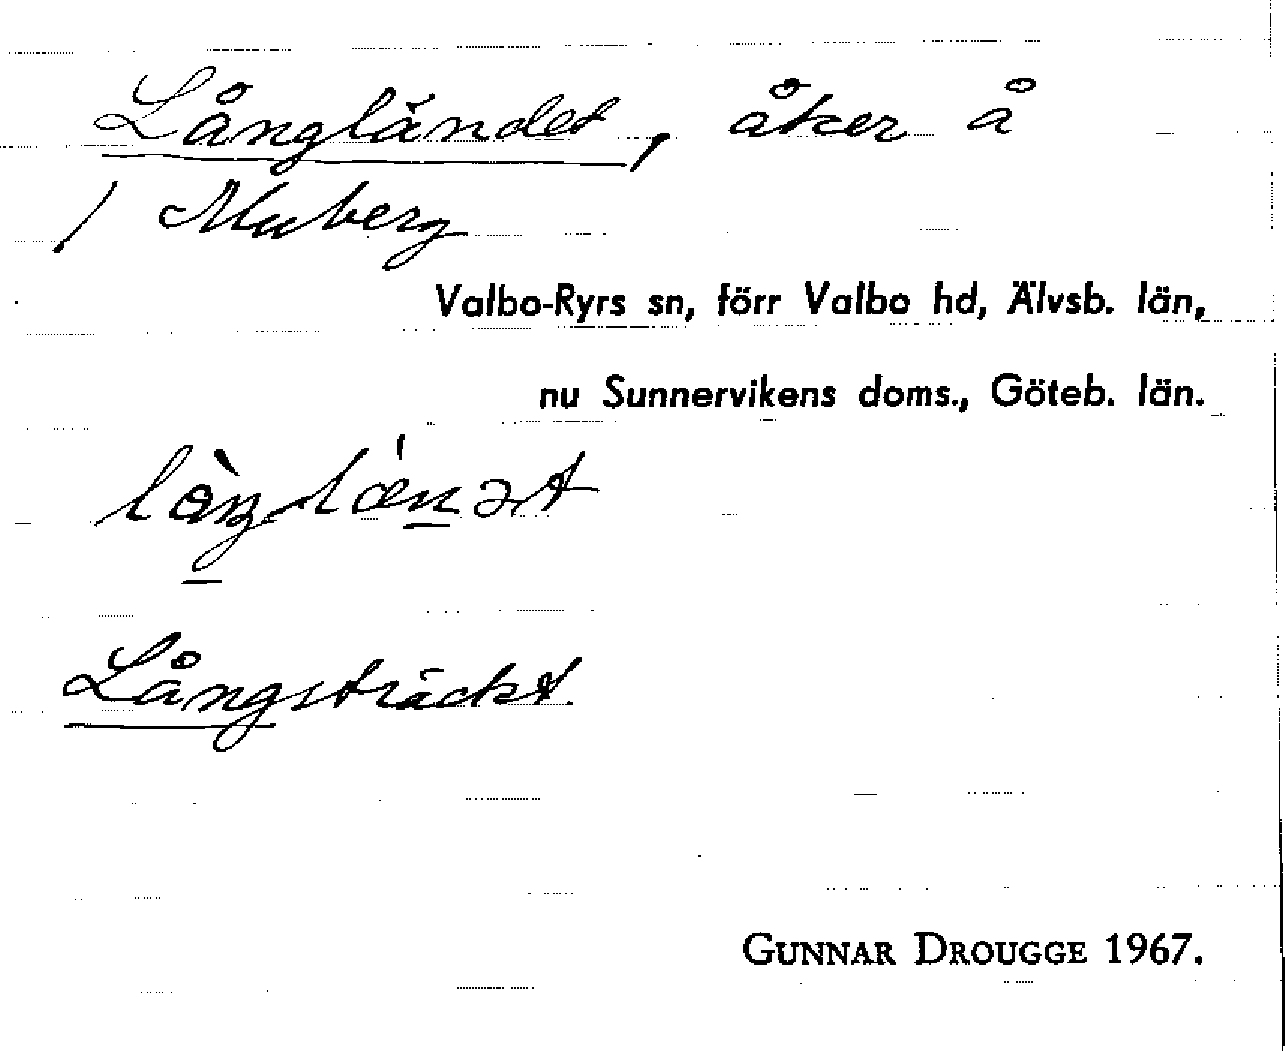 Långländet, åker å
/ Muberg
Valbo-Ryrs sn, förr Valbo hd, Älvsb. län,
nu Sunnervikens doms., Göteb. län.
Långsträckt.
GUNNAR DROUGGE 1967.